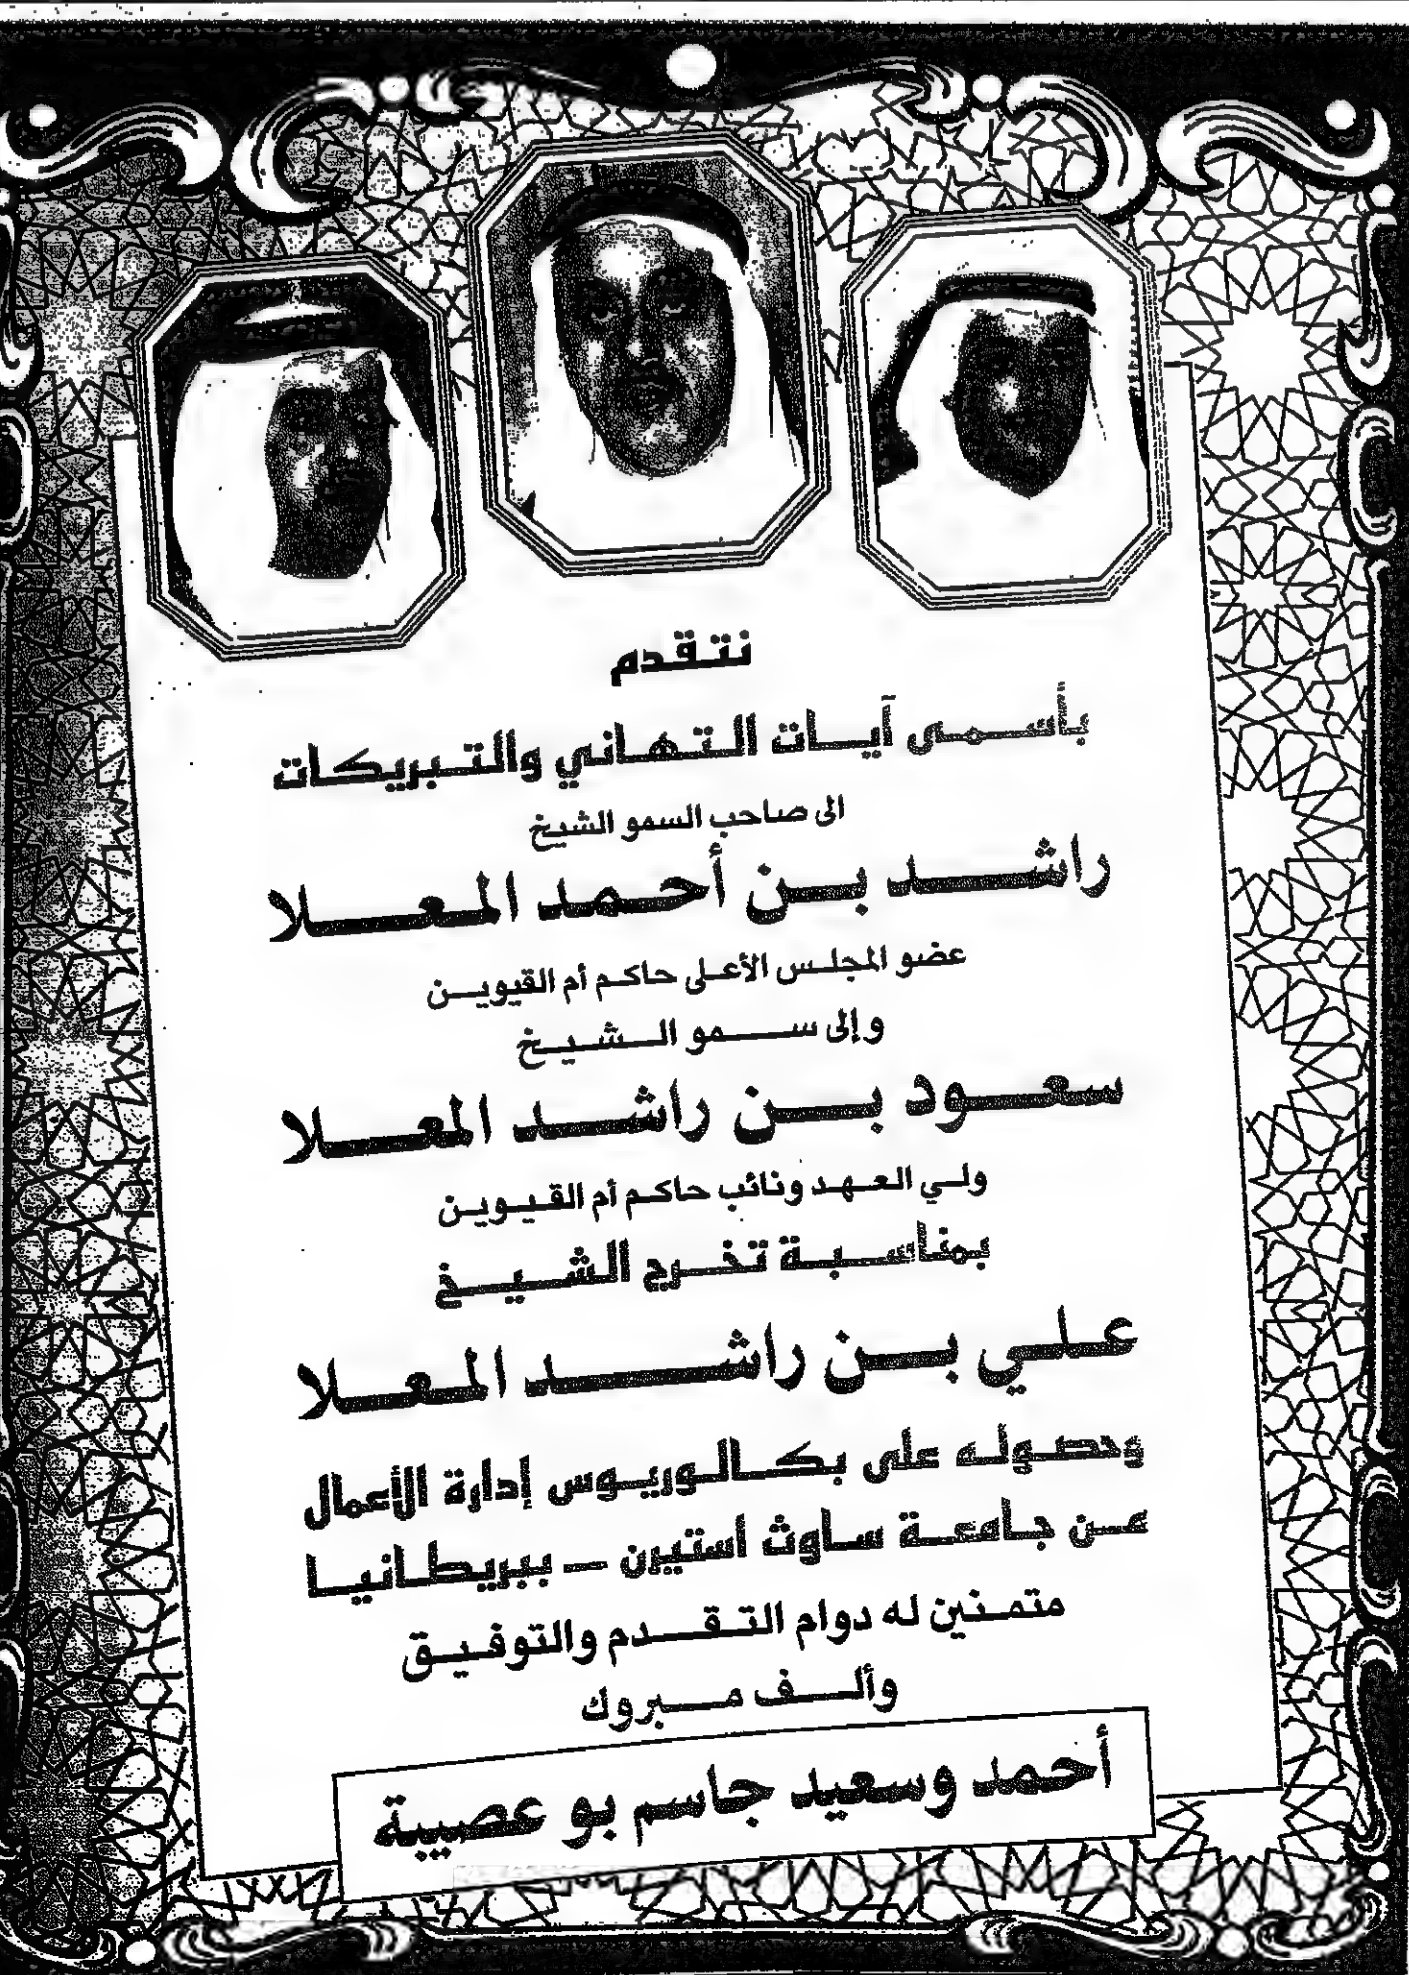 نتقدم
بأسمى آيات التهاني والتبريكات
الى صاحب السمو الشيخ
راشد بن أحمد المعلا
عضو المجلس الأعلى حاكم أم القيوين
وإلى سمو الشيخ
سعود بن راشد المعلا
ولي العهد ونائب حاكم أم القيوين
بمناسبة تخرج الشيخ
علي بن راشد المعلا
وحصوله على بكالوريوس إدارة الأعمال
عن جامعة ساوث استيرن - ببريطانيا
متمنين له دوام التقدم والتوفيق
وألف مبروك
أحمد وسعيد جاسم بو عصيبة